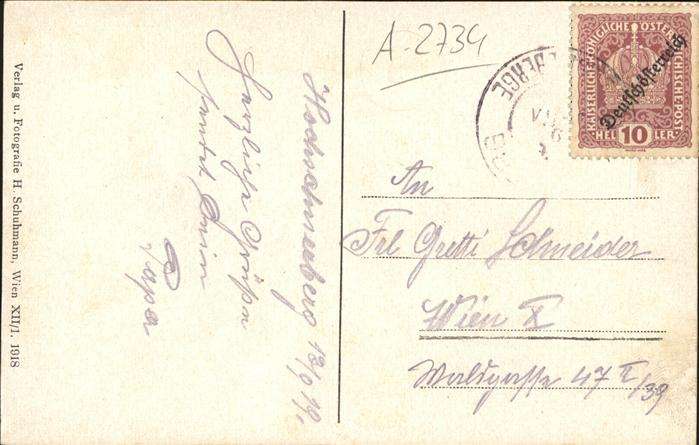 A-2734
KAISERLICHE KÖNIGLICHE ÖSTERREICHISCHE POST
Deutschösterreich
HEL 10 LER
An
Frl Gretti Schneider
Wien X
Waldgasse 47 II/39
Hochschneeberg 13/6 19.
Herzliche Grüße
sendet Deinen
Papa
Verlag u. Fotografie H. Schuhmann, Wien XII/1. 1918